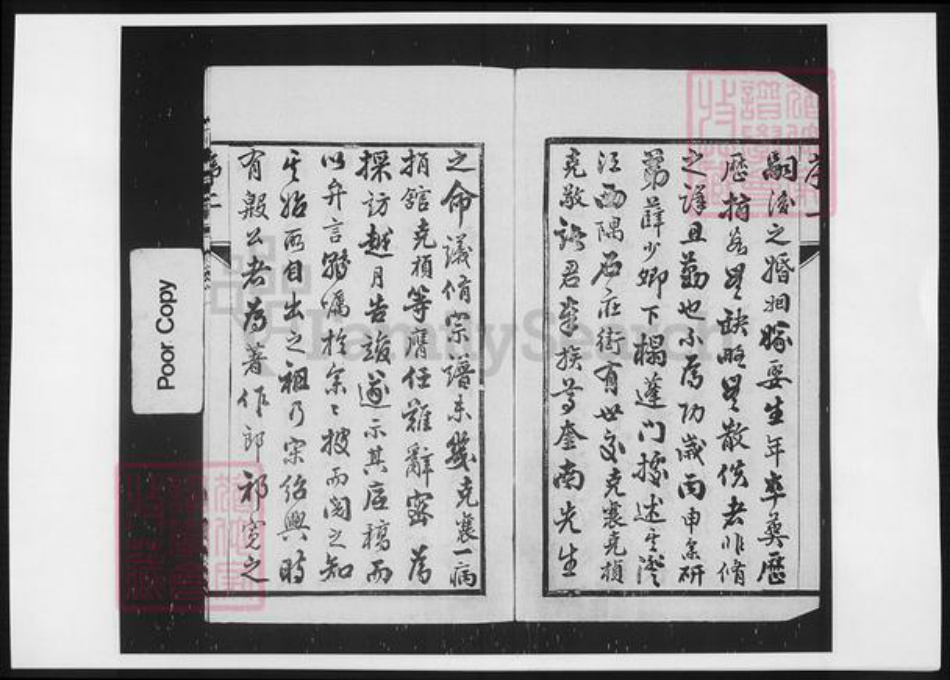 嗣後之婚姻嫁娶生年卒葬歷
歷指若星缺略星散佚者非脩
之謹且勤也不為功歲丙申余研
弟薛少卿下榻蓬門據述其澄
江西隅石莊街有世交克襄克楨
克敬諸君率族等奎南先生
之命議脩宗譜未幾克襄一病
捐館克楨等膺任難辭密為
採訪越月告竣遂示其底稿而
以弁言諄囑於余余披而閱之知
其始所自出之祖乃宋紹興時
有毅公者為著作郎祁寬之
序一
Poor Copy
FamilySearch